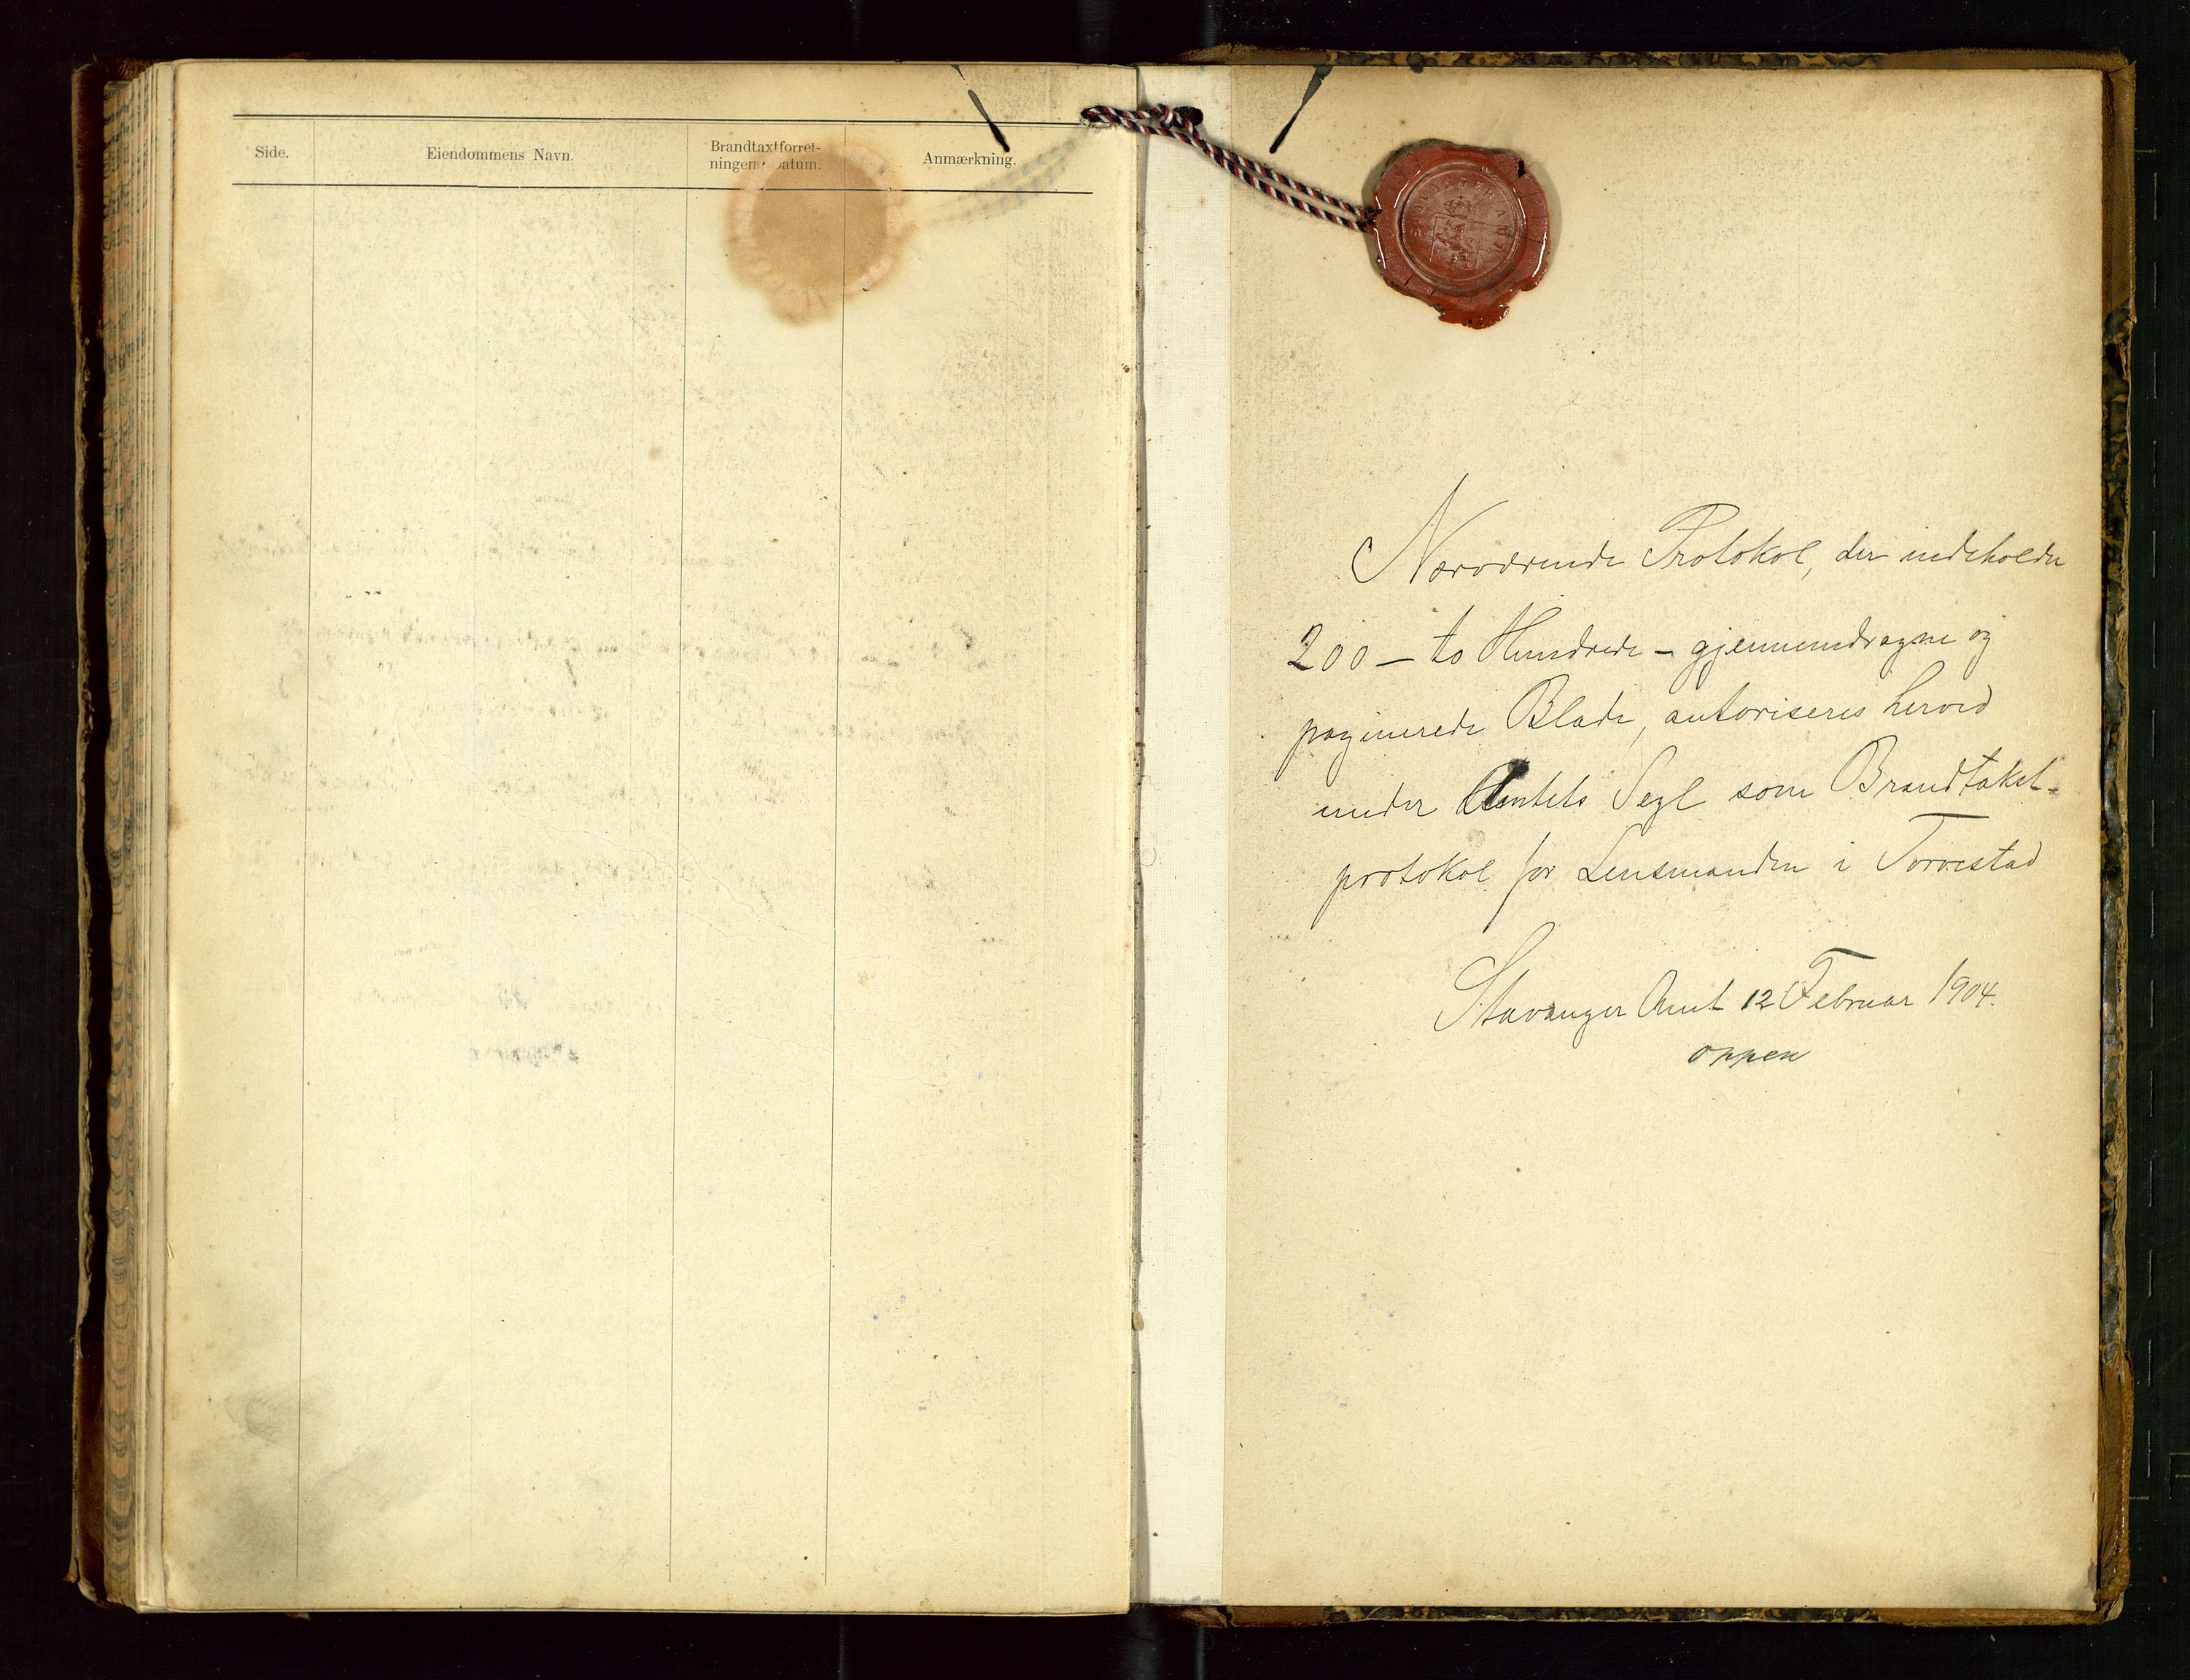 Side.
Eiendommens Navn.
Brandtaxtforret-
ningens Datum.
Anmærkning.
STAVANGER AMT
Nærværende Protokol, der indeholder
200 – to Hundrede – gjennemdragne og
paginerede Blade, autoriseres herved
under Amtets Segl som Brandtakst-
protokol for Lensmanden i Torvestad
Stavanger Amt 12 Februar 1904.
Oppen